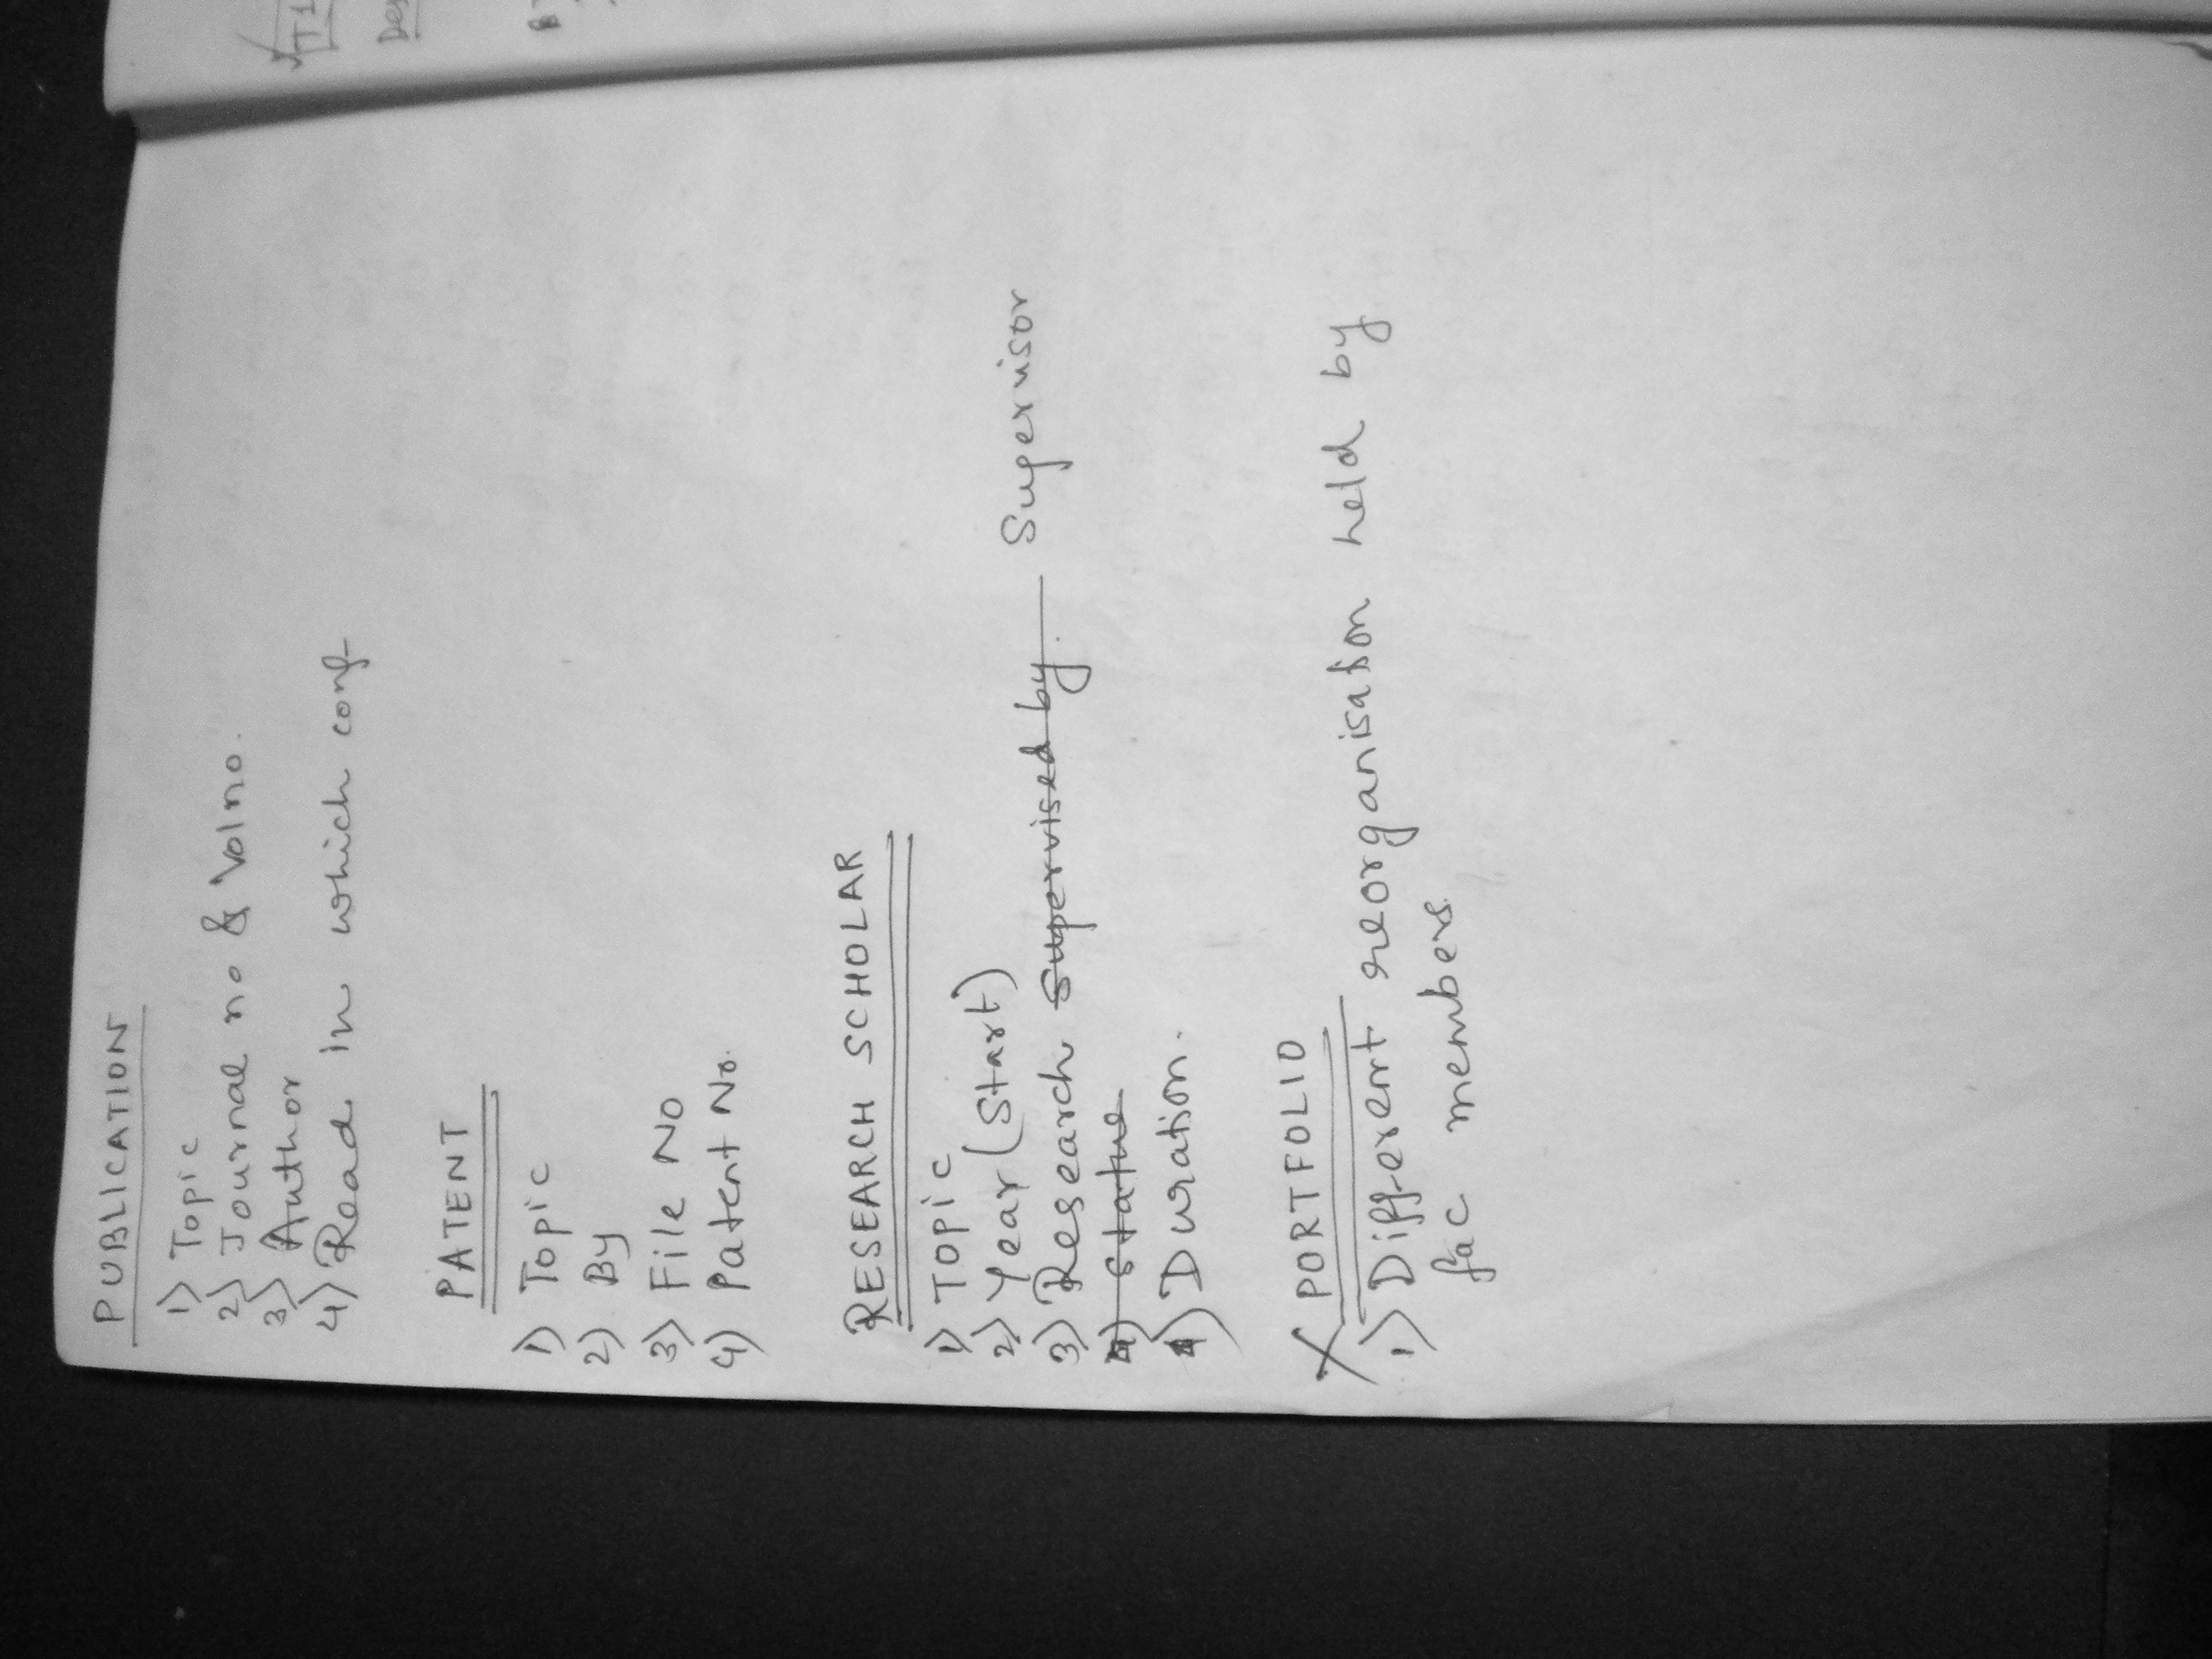 PUBLICATION
1) Topic
2) Journal no & Vol no.
3) Author
4) Read in which conf
PATENT
1) Topic
2) By
3) File No
4) Patent No.
RESEARCH SCHOLAR
1) Topic
2) Year (Start)
3) Research Supervised by. Supervisor
4) status
4) Duration.
X PORTFOLIO
1) Different reorganisation held by
fac members.
T1
Des